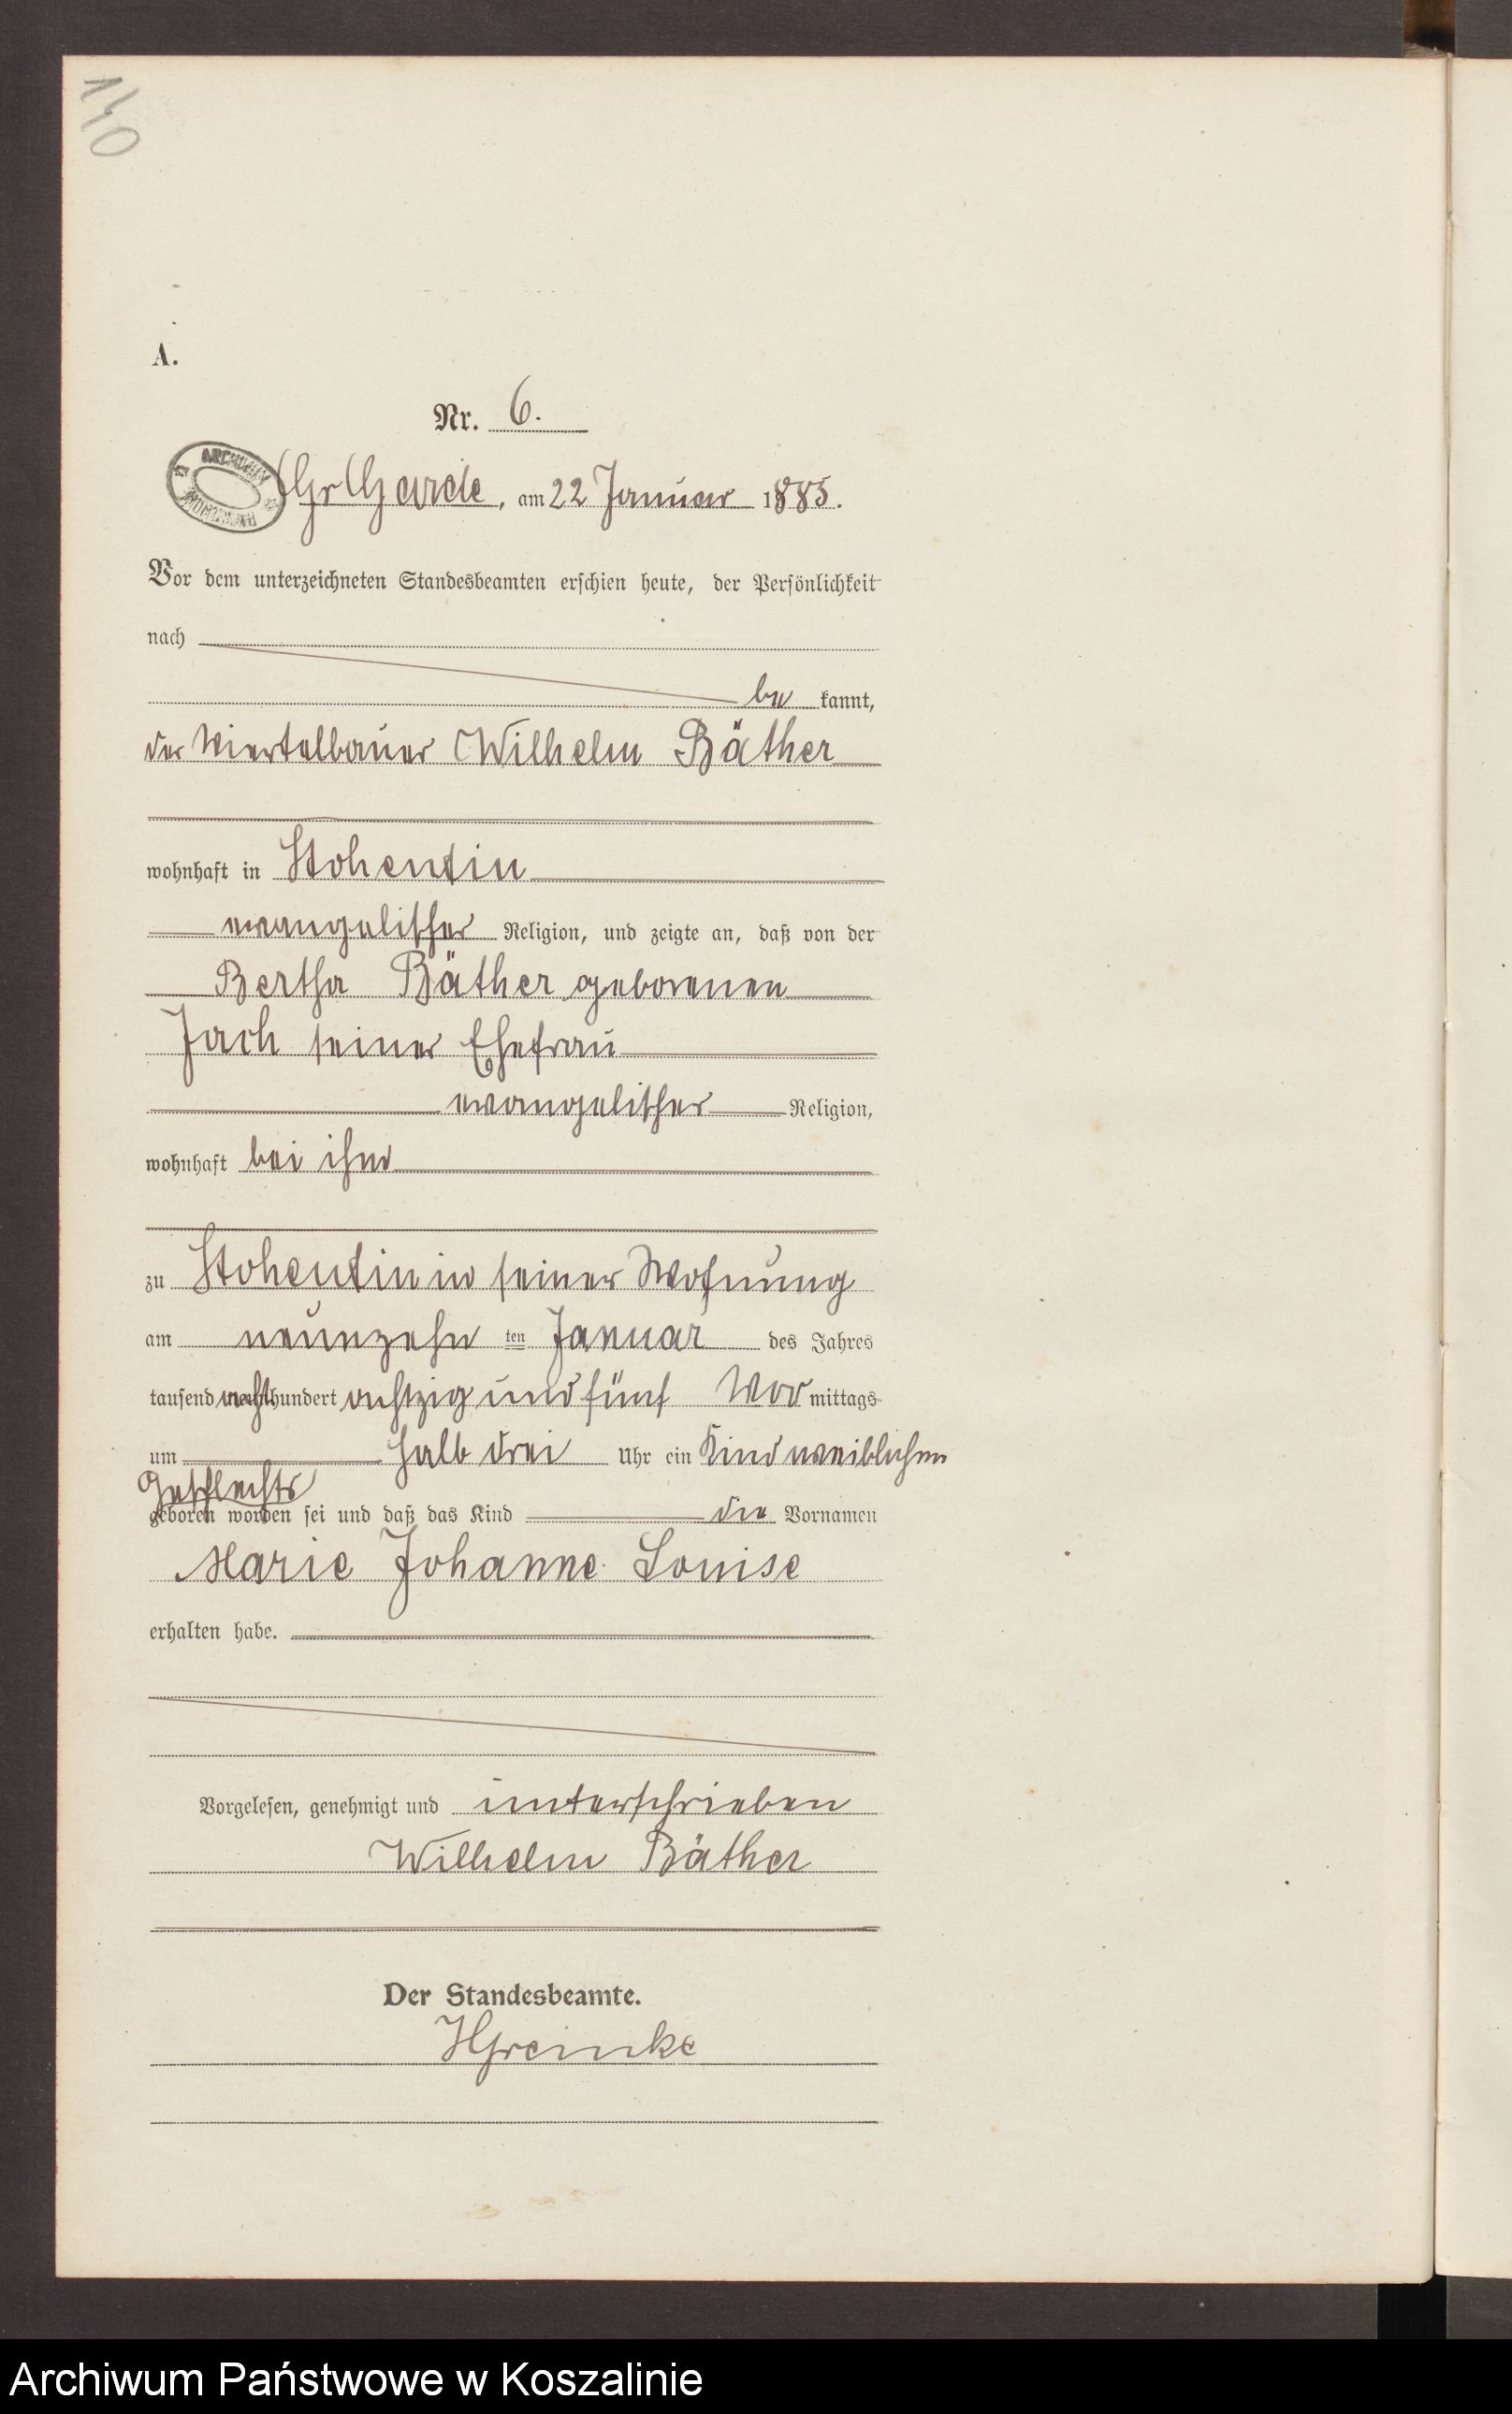 140
A.
Nr. 6.
Gr Garde, am 22 Januar 1885.
Vor dem unterzeichneten Standesbeamten erschien heute, der Persönlichkeit
nach
be kannt,
der Viertelbauer Wilhelm Bäther
wohnhaft in Stohentin
evangelischer Religion, und zeigte an, daß von der
Bertha Bäther geborenen
Jach seiner Ehefrau
evangelischer Religion,
wohnhaft bei ihm
zu Stohentin in seiner Wohnung
am neunzehn ten Januar des Jahres
tausend acht hundert achtzig und fünf Vor mittags
um halb drei Uhr ein Kind weiblichen
Geschlechts
geboren worden sei und daß das Kind die Vornamen
Marie Johanne Louise
erhalten habe.
Vorgelesen, genehmigt und unterschrieben
Wilhelm Bäther
Der Standesbeamte.
HGreinke
Archiwum Państwowe w Koszalinie